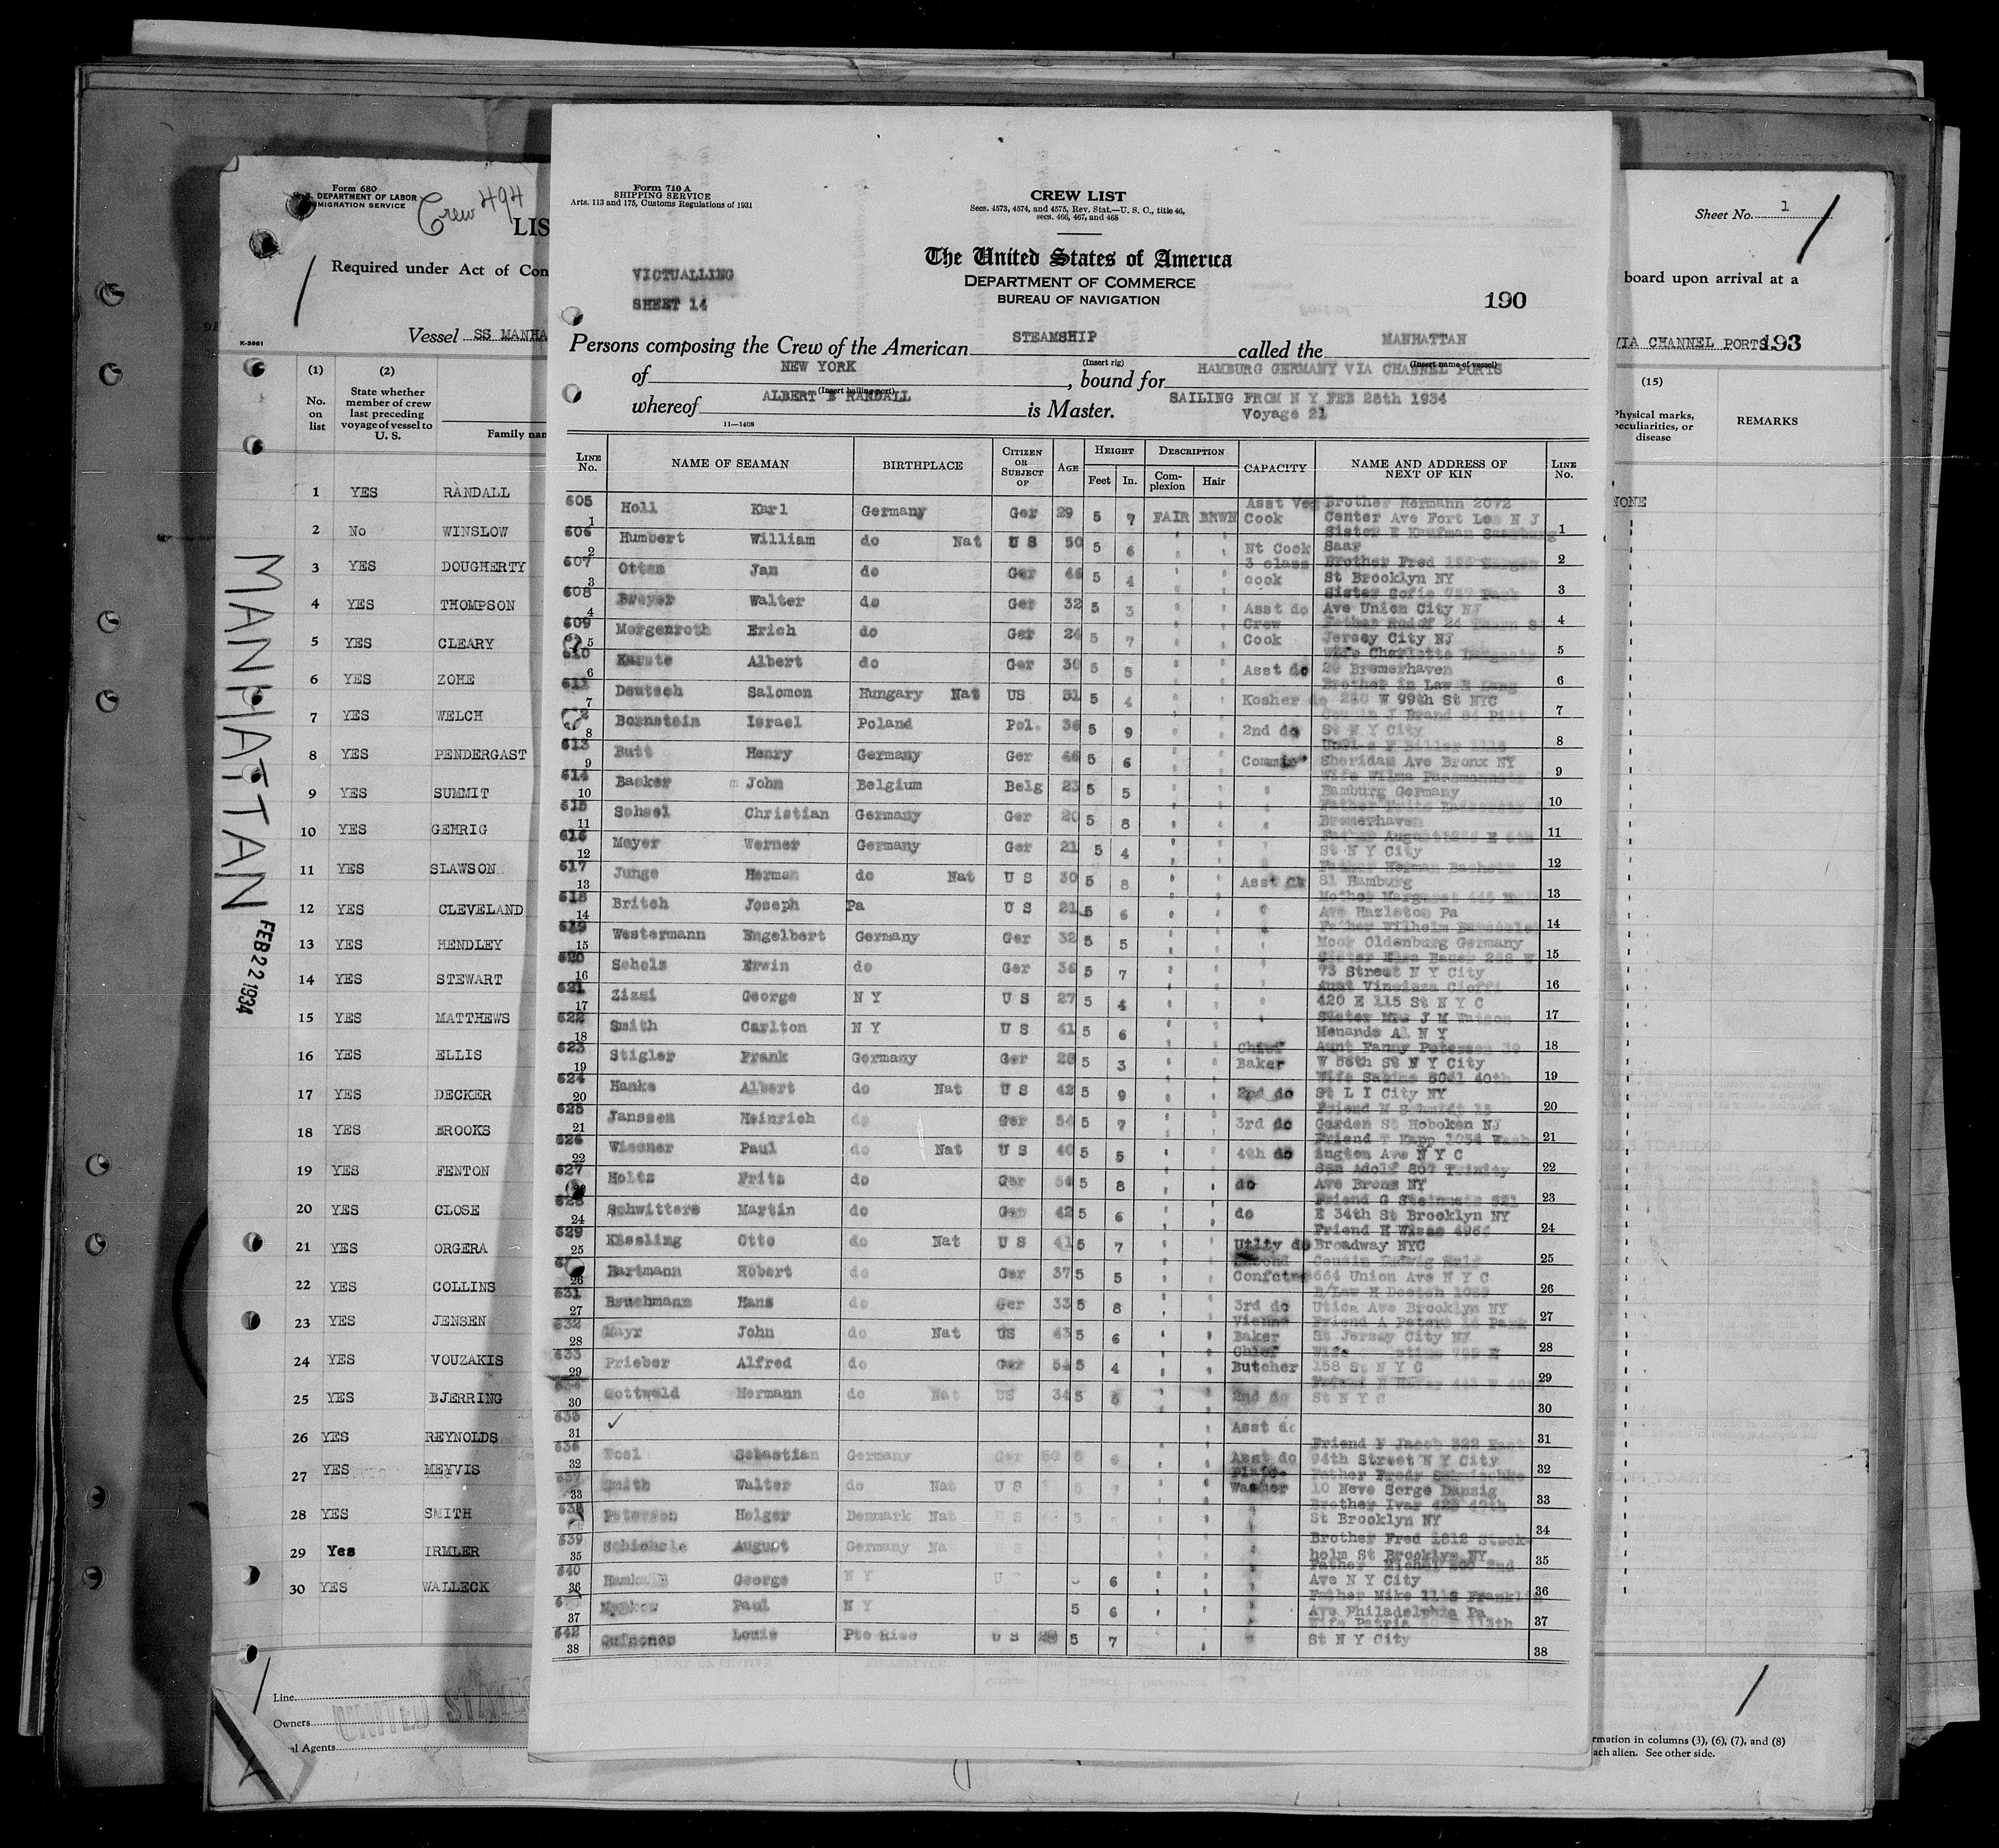 Form 680
DEPARTMENT OF LABOR
MIGRATION SERVICE
Crew 494
LIS
Required under Act of Con
Vessel SS MANHA
K-3961
(1) (2)
No. on list
State whether member of crew last preceding voyage of vessel to U. S.
Family nam
1 YES RANDALL
2 No WINSLOW
3 YES DOUGHERTY
4 YES THOMPSON
5 YES CLEARY
6 YES ZOHE
7 YES WELCH
8 YES PENDERGAST
9 YES SUMMIT
10 YES GEHRIG
11 YES SLAWSON
12 YES CLEVELAND
13 YES HENDLEY
14 YES STEWART
15 YES MATTHEWS
16 YES ELLIS
17 YES DECKER
18 YES BROOKS
19 YES FENTON
20 YES CLOSE
21 YES ORGERA
22 YES COLLINS
23 YES JENSEN
24 YES VOUZAKIS
25 YES BJERRING
26 YES REYNOLDS
27 YES MEYVIS
28 YES SMITH
29 Yes IRMLER
30 YES WALLECK
Line
Owners
al Agents
UNITED STATES
MANHATTAN
FEB 22 1934
Form 710 A
SHIPPING SERVICE
Arts. 113 and 175, Customs Regulations of 1931
CREW LIST
Secs. 4573, 4574, and 4575, Rev. Stat.—U. S. C., title 46,
secs. 466, 467, and 468
The United States of America
DEPARTMENT OF COMMERCE
BUREAU OF NAVIGATION
VICTUALLING
SHEET 14
190
Persons composing the Crew of the American STEAMSHIP called the MANHATTAN
(Insert rig) (Insert name of vessel)
of NEW YORK, bound for HAMBURG GERMANY VIA CHANNEL PORTS
(Insert hailing port)
whereof ALBERT B RANDALL is Master. SAILING FROM N Y FEB 28th 1934
Voyage 21
11—1408
LINE No. NAME OF SEAMAN BIRTHPLACE CITIZEN OR SUBJECT OF AGE HEIGHT Feet In. DESCRIPTION Complexion Hair CAPACITY NAME AND ADDRESS OF NEXT OF KIN LINE No.
605 1 Holl Karl Germany Ger 29 5 7 FAIR BRWN Asst Veg Cook Brother Hermann 2072 Center Ave Fort Lee N J 1
606 2 Humbert William do Nat U S 50 5 6 " " Nt Cook Sister E Kaufman Saar 2
607 3 Otten Jan do Ger 46 5 4 " " 3 class cook Brother Fred St Brooklyn NY 3
608 4 Breyer Walter do Ger 32 5 3 " " Asst do Sister Sofie Ave Union City NJ 4
609 5 Morgenroth Erich do Ger 24 5 7 " " Crew Cook Father Jersey City NJ 5
610 6 Albert do Ger 30 5 5 " " Asst do Wife Charlotte 29 Bremerhaven 6
611 7 Deutsch Salomon Hungary Nat US 51 5 4 " " Kosher do Brother in Law W 99th St NYC 7
8 Bornstein Israel Poland Pol. 36 5 9 " " 2nd do Cousin J Brand St N Y City 8
613 9 Butt Henry Germany Ger 46 5 6 " " Commis Sheridan Ave Bronx NY 9
614 10 Backer John Belgium Belg 23 5 5 " " " Wife Wilma Hamburg Germany 10
615 11 Christian Germany Ger 20 5 8 " " " Father Bremerhaven 11
616 12 Meyer Werner Germany Ger 21 5 4 " " " Father August St N Y City 12
617 13 Junge Herman do Nat U S 30 5 8 " " Asst Ck Father Herman 81 Hamburg 13
618 14 Britch Joseph Pa U S 21 5 6 " " " Mother Margaret Ave Hazleton Pa 14
619 15 Westermann Engelbert Germany Ger 32 5 5 " " " Father Wilhelm Moor Oldenburg Germany 15
620 16 Scholz Erwin do Ger 36 5 7 " " " Sister 73 Street N Y City 16
621 17 Zizzi George N Y U S 27 5 4 " " " Aunt Cioffi 420 E 115 St N Y C 17
622 18 Smith Carlton N Y U S 41 5 6 " " " Sister Mrs J M Watson Menands Al N Y 18
623 19 Stigler Frank Germany Ger 28 5 3 " " Chief Baker Aunt Fanny Petersen 39 W 56th St N Y City 19
624 20 Hanke Albert do Nat U S 42 5 9 " " 2nd do Wife 40th St L I City NY 20
625 21 Janssen Heinrich do Ger 54 5 7 " " 3rd do Friend M Schmidt Garden St Hoboken NJ 21
626 22 Wiesner Paul do Nat U S 40 5 5 " " 4th do Friend T Kapp 1054 Washington Ave N Y C 22
627 Holtz Fritz do Ger 5 8 " " do Adolf 807 Trinity Ave Bronx NY 23
628 24 Schwitters Martin do Ger 42 5 6 " " do Friend G 521 E 34th St Brooklyn NY 24
629 25 Kiesling Otto do Nat U S 41 5 7 " " Utlty do Friend H Broadway NYC 25
26 Hartmann Robert do Ger 37 5 5 " " Second Confctnr Cousin Ludwig 664 Union Ave N Y C 26
631 27 Bruchmann Hans do Ger 33 5 8 " " 3rd do B/Law H Utica Ave Brooklyn NY 27
632 28 Mayr John do Nat US 43 5 6 " " Vienna Baker Friend A Peters Park St Jersey City NJ 28
633 29 Prieber Alfred do Ger 54 5 4 " " Chief Butcher Wife 158 St N Y C 29
634 30 Gottwald Hermann do Nat US 34 5 8 " " 2nd do Friend St N Y C 30
635 31 ✓ Asst do 31
636 32 Sebastian Germany Ger 6 " " Asst do Friend F Jacob 322 East 94th Street N Y City 32
637 33 Smith Walter do Nat U S 5 " " Plate Washer Father 10 Neve Sorge Danzig 33
638 Peterson Holger Denmark Nat U S 5 " " " Brother Ivar 42th St Brooklyn NY 34
639 35 August Germany Na S " " " Brother Fred 1812 Stockholm St Brooklyn NY 35
640 36 George N Y U 6 " " " Father 2nd Ave N Y City 36
37 Paul N Y 5 6 " " " Father Mike Franklin Ave Philadelphia Pa 37
642 38 Quinones Louis Pto Rico U S 29 5 7 " " Wife 113th St N Y City 38
Sheet No. 1
board upon arrival at a
VIA CHANNEL PORTS 193
(15)
Physical marks, peculiarities, or disease
REMARKS
NONE
rmation in columns (3), (6), (7), and (8)
ach alien. See other side.